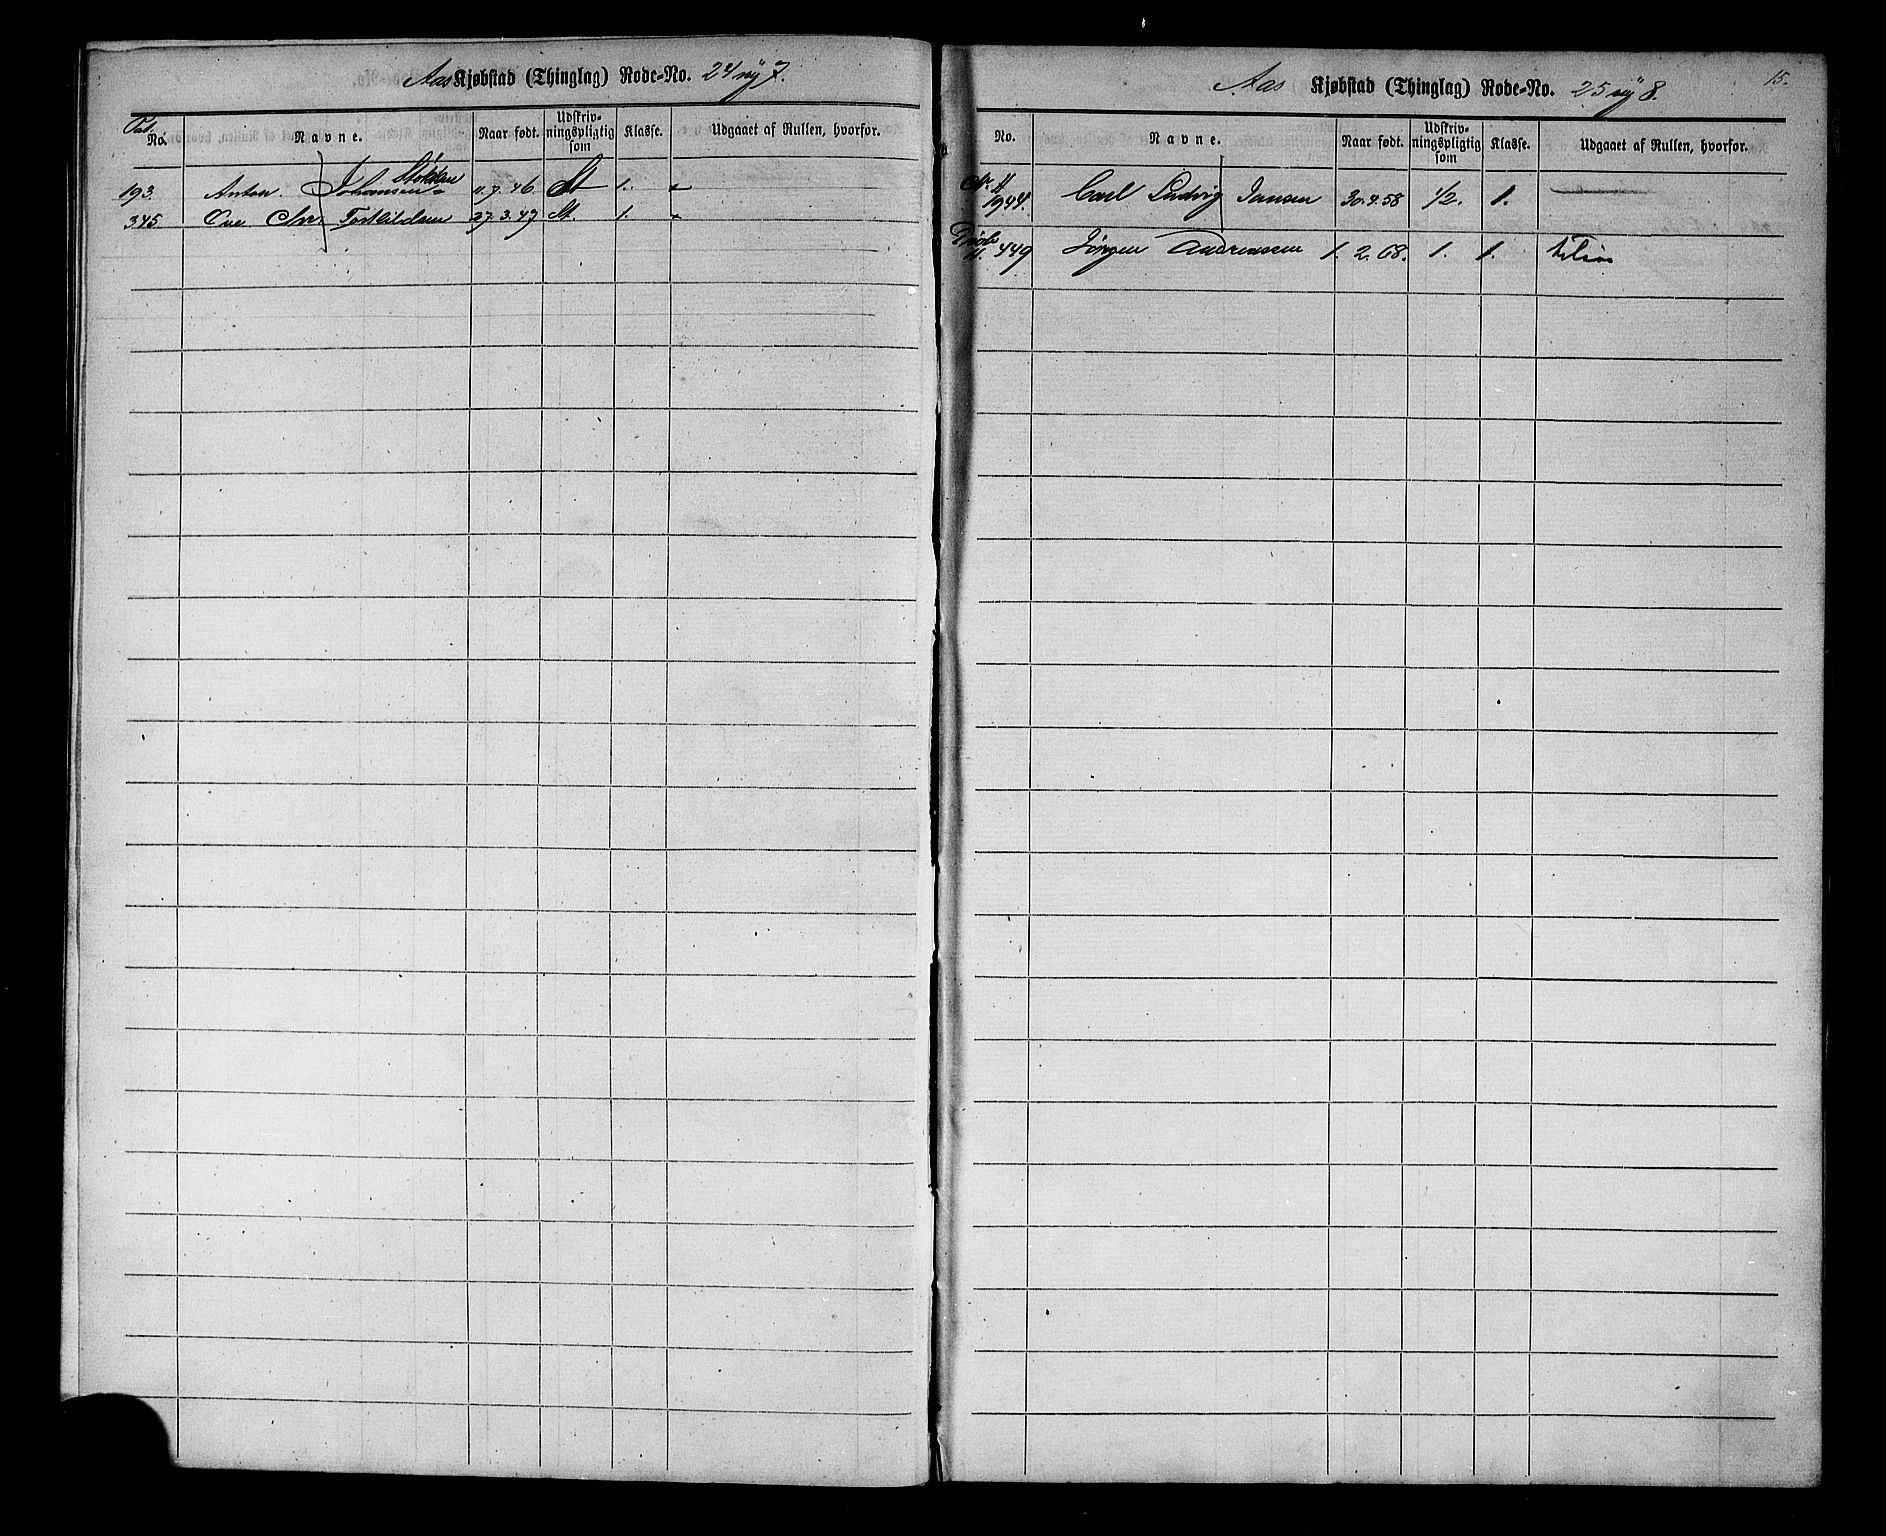 Aas Kjøbstad (Thinglag) Rode-No. 24 ny 7.
Pat. No. Navne. Naar født. Udskriv-ningspligtig som Klasse. Udgaaet af Rullen, hvorfor.
193. Anton Johansen 11.7.46. St 1.
345. Ove Chr. Torkildsen 27.3.47. St. 1.
15.
Aas Kjøbstad (Thinglag) Rode-No. 25 ny 8.
No. Navne. Naar født. Udskriv-ningspligtig som Klasse. Udgaaet af Rullen, hvorfor.
1944. Carl Ludvig Jansen 30.4.58 1/2. 1.
449 Jørgen Andreassen 1.2.68. 1. 1.